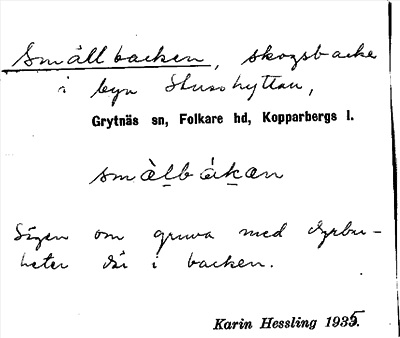 Smällbacken, skogsbacke
i byn Stusshyttan,
Grytnäs sn, Folkare hd, Kopparbergs l.
smæ̀lbákan
Sägen om gruva med dyrbar-
heter där i backen.
Karin Hessling 1935.